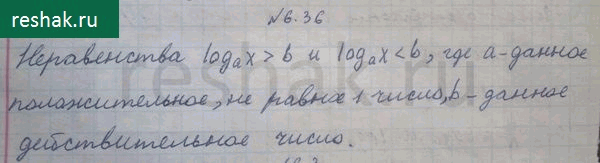 reshak.ru
№6.36
Неравенства logₐx > b и logₐx < b, где a-данное
положительное, не равное 1 число, b-данное
действительное число.